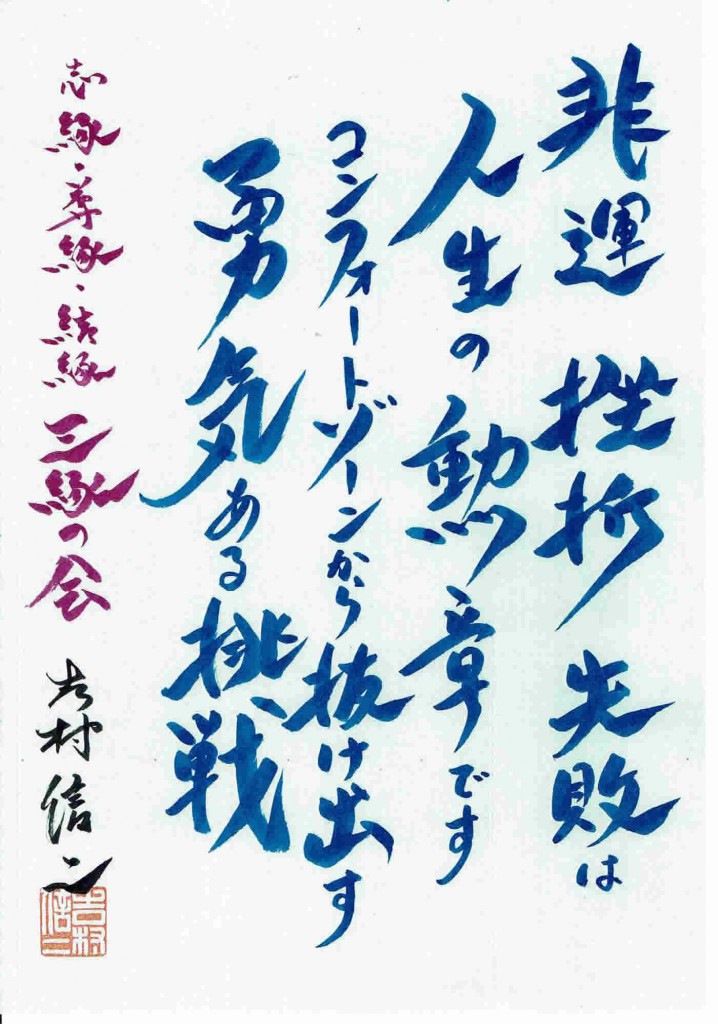 非運 挫折 失敗は
人生の勲章です
コンフォートゾーンから抜け出す
勇気ある挑戦
志縁・尊縁・結縁 三縁の会
吉村信二
吉村
信二